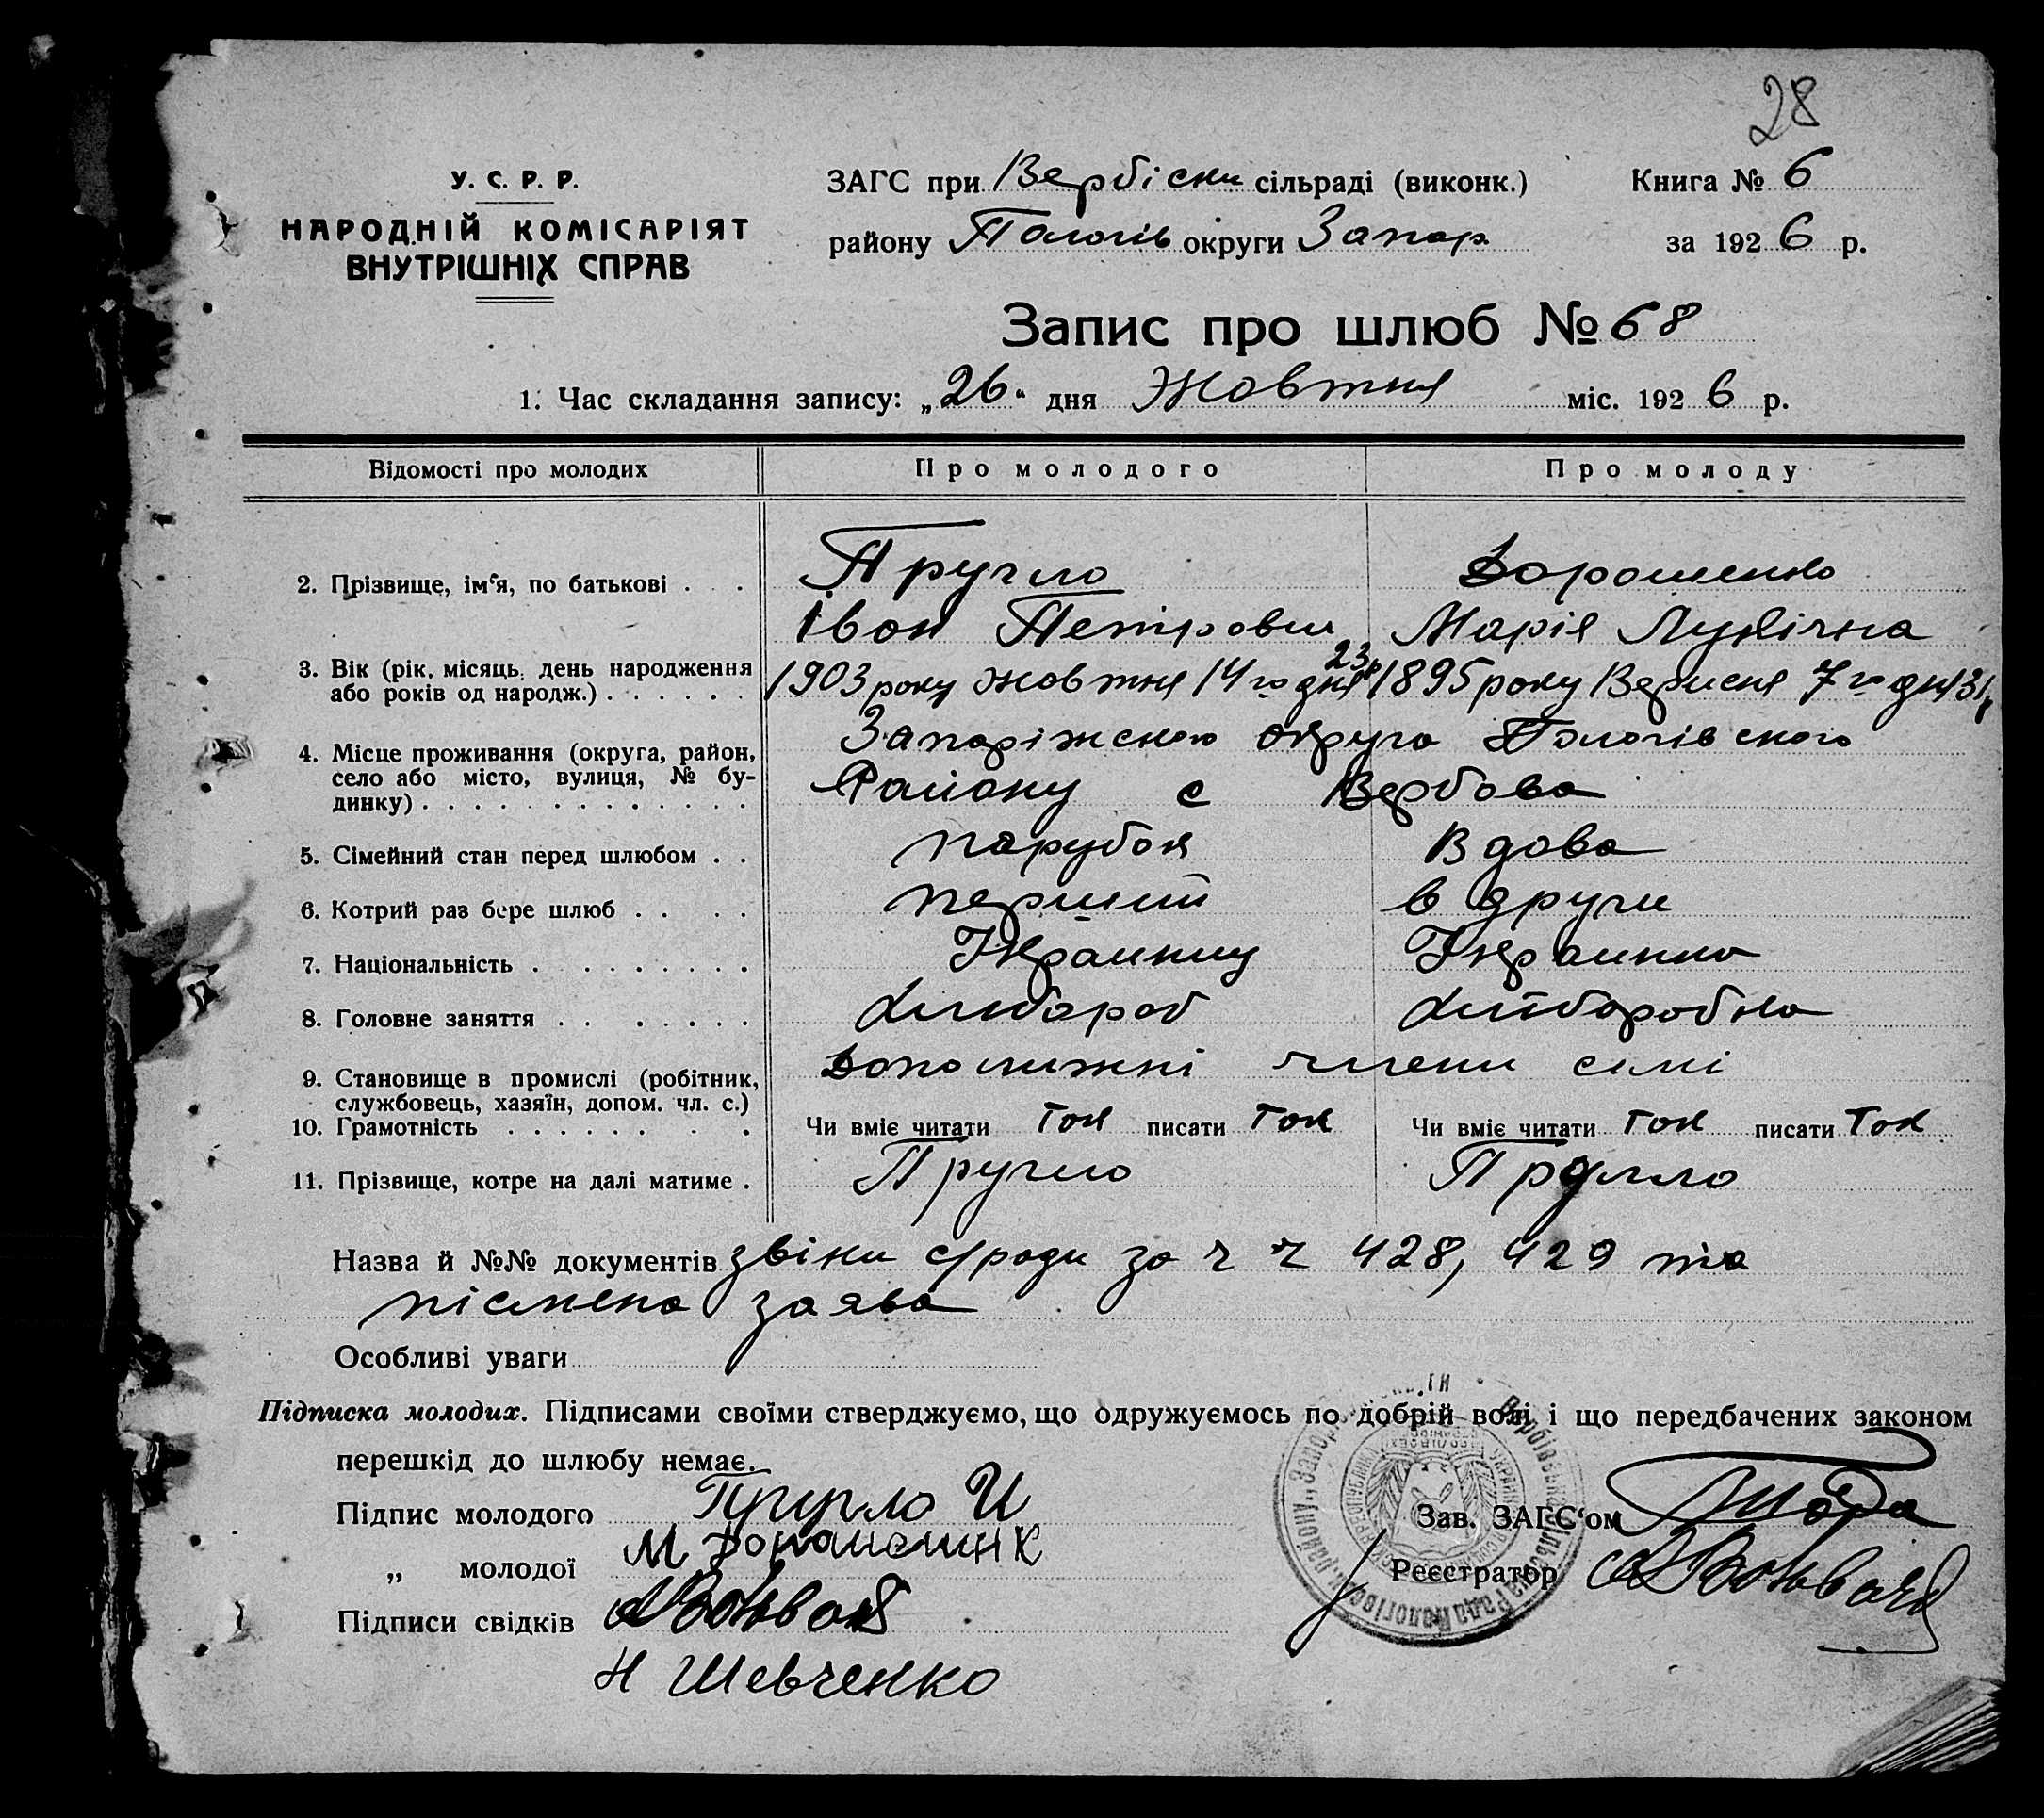 28
У. С. Р. Р.
НАРОДНІЙ КОМІСАРІЯТ
ВНУТРІШНІХ СПРАВ
ЗАГС при Вербіски сільраді (виконк.)
Книга № 6
району Пологів округи Запор
за 1926 р.
Запис про шлюб № 68
1. Час складання запису: „26" дня Жовтня міс. 1926 р.
Відомості про молодих
Про молодого
Про молоду
2. Прізвище, ім'я, по батькові . . .
Пругло
Дорошенко
Івон Петрович
Марія Лукічна
3. Вік (рік, місяць, день народження
або років од народж.) . . . . . .
1903 року жовтня 14 го дня 23 р
1895 року Вересня 7 го дня 31 р
4. Місце проживання (округа, район,
село або місто, вулиця, № бу-
динку) . . . . . . . . . . . . .
Запоріжского округа Пологівского
Району с Вербова
5. Сімейний стан перед шлюбом . .
парубок
Вдова
6. Котрий раз бере шлюб . . . .
перший
в други
7. Національність . . . . . . . .
Украинец
Украинка
8. Головне заняття . . . . . . .
Хлибороб
Хлиборобка
9. Становище в промислі (робітник,
службовець, хазяїн, допом. чл. с.)
Допоміжні члени семі
10. Грамотність . . . . . . . .
Чи вміє читати Так писати Так
Чи вміє читати Так писати Так
11. Прізвище, котре на далі матиме .
Пругло
Пругло
Назва й №№ документів звіки с/ради за ч ч 428, 429 та
пісмена заява
Особливі уваги
Підписка молодих. Підписами своїми стверджуємо, що одружуємось по добрій волі і що передбачених законом
перешкід до шлюбу немає.
Підпис молодого Пругло И
„ молодої
Підписи свідків
Н Шевченко
Зав. ЗАГС'ом
Реєстратор